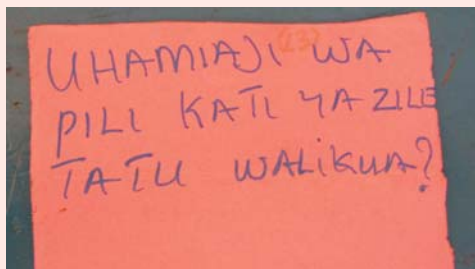 UHAMIAJI (23) WA
PILI KATI YA ZILE
TATU WALIKUA?